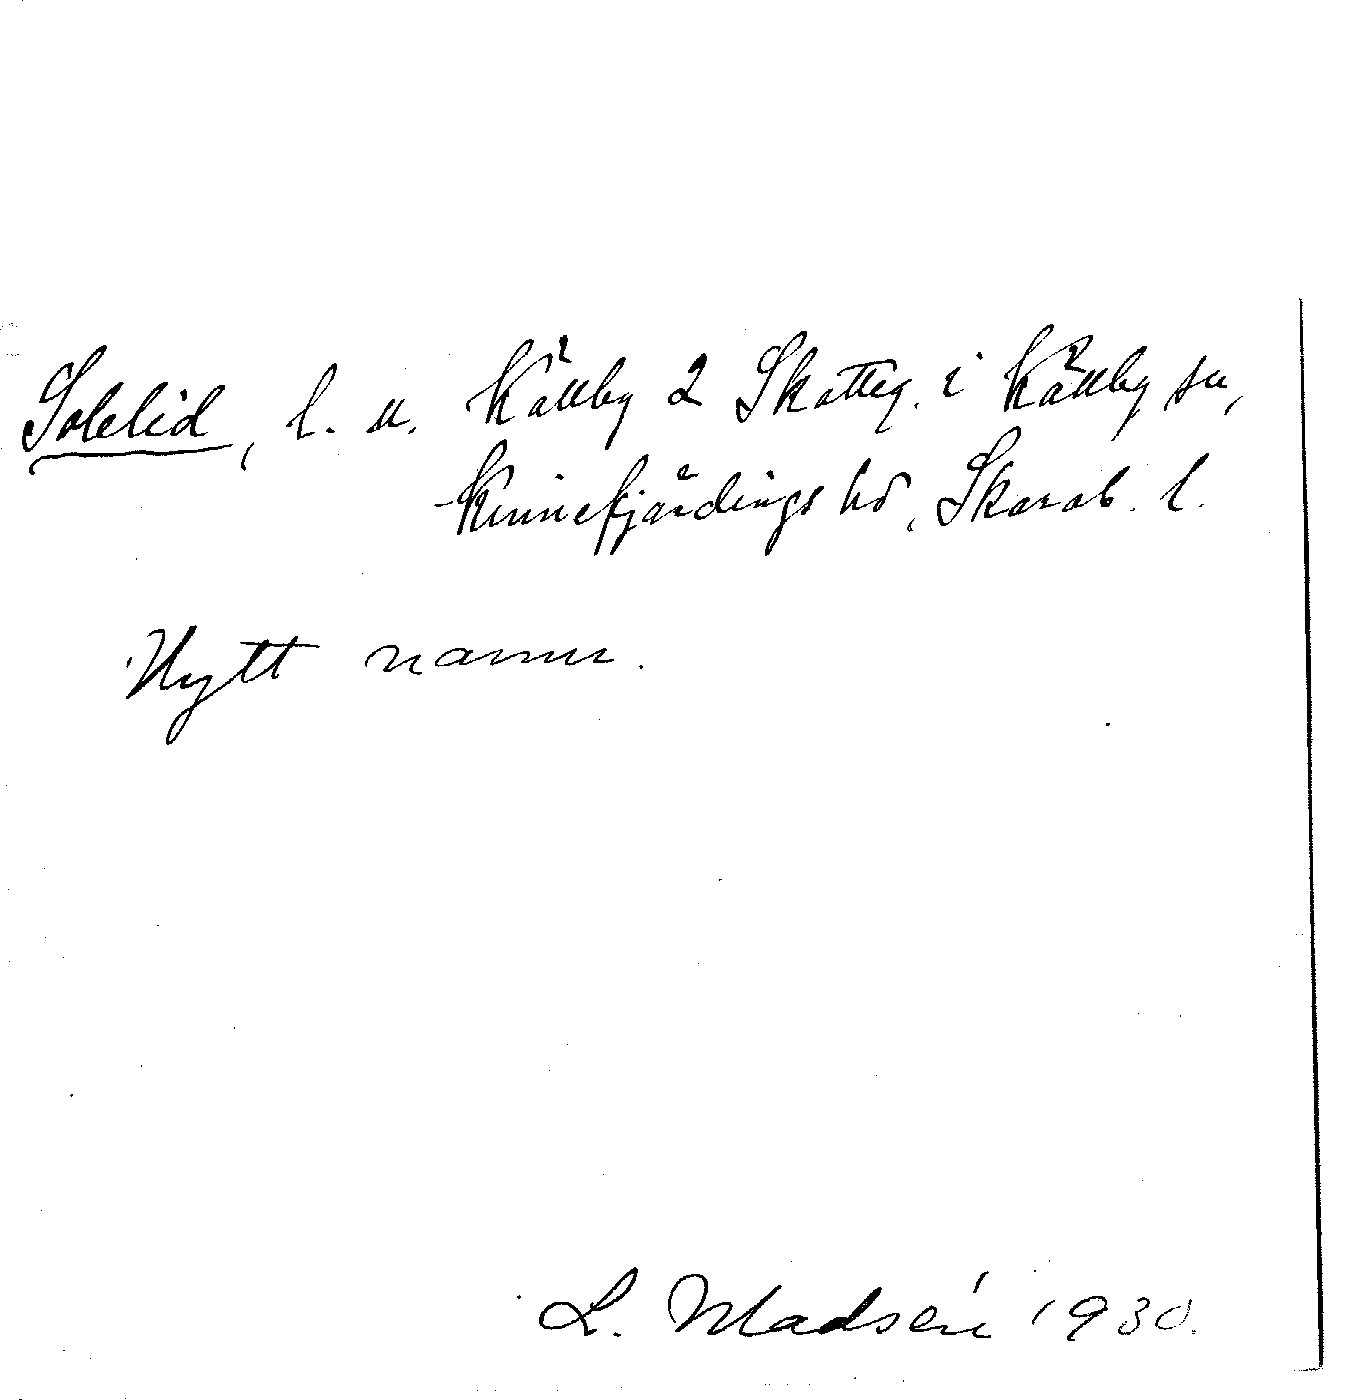 Sollid, l. u. Källby 2 Skatteg. i Källby sn,
Kinnefjärdings hd, Skarab. l.
Nytt namn.
L. Madsén 1930.